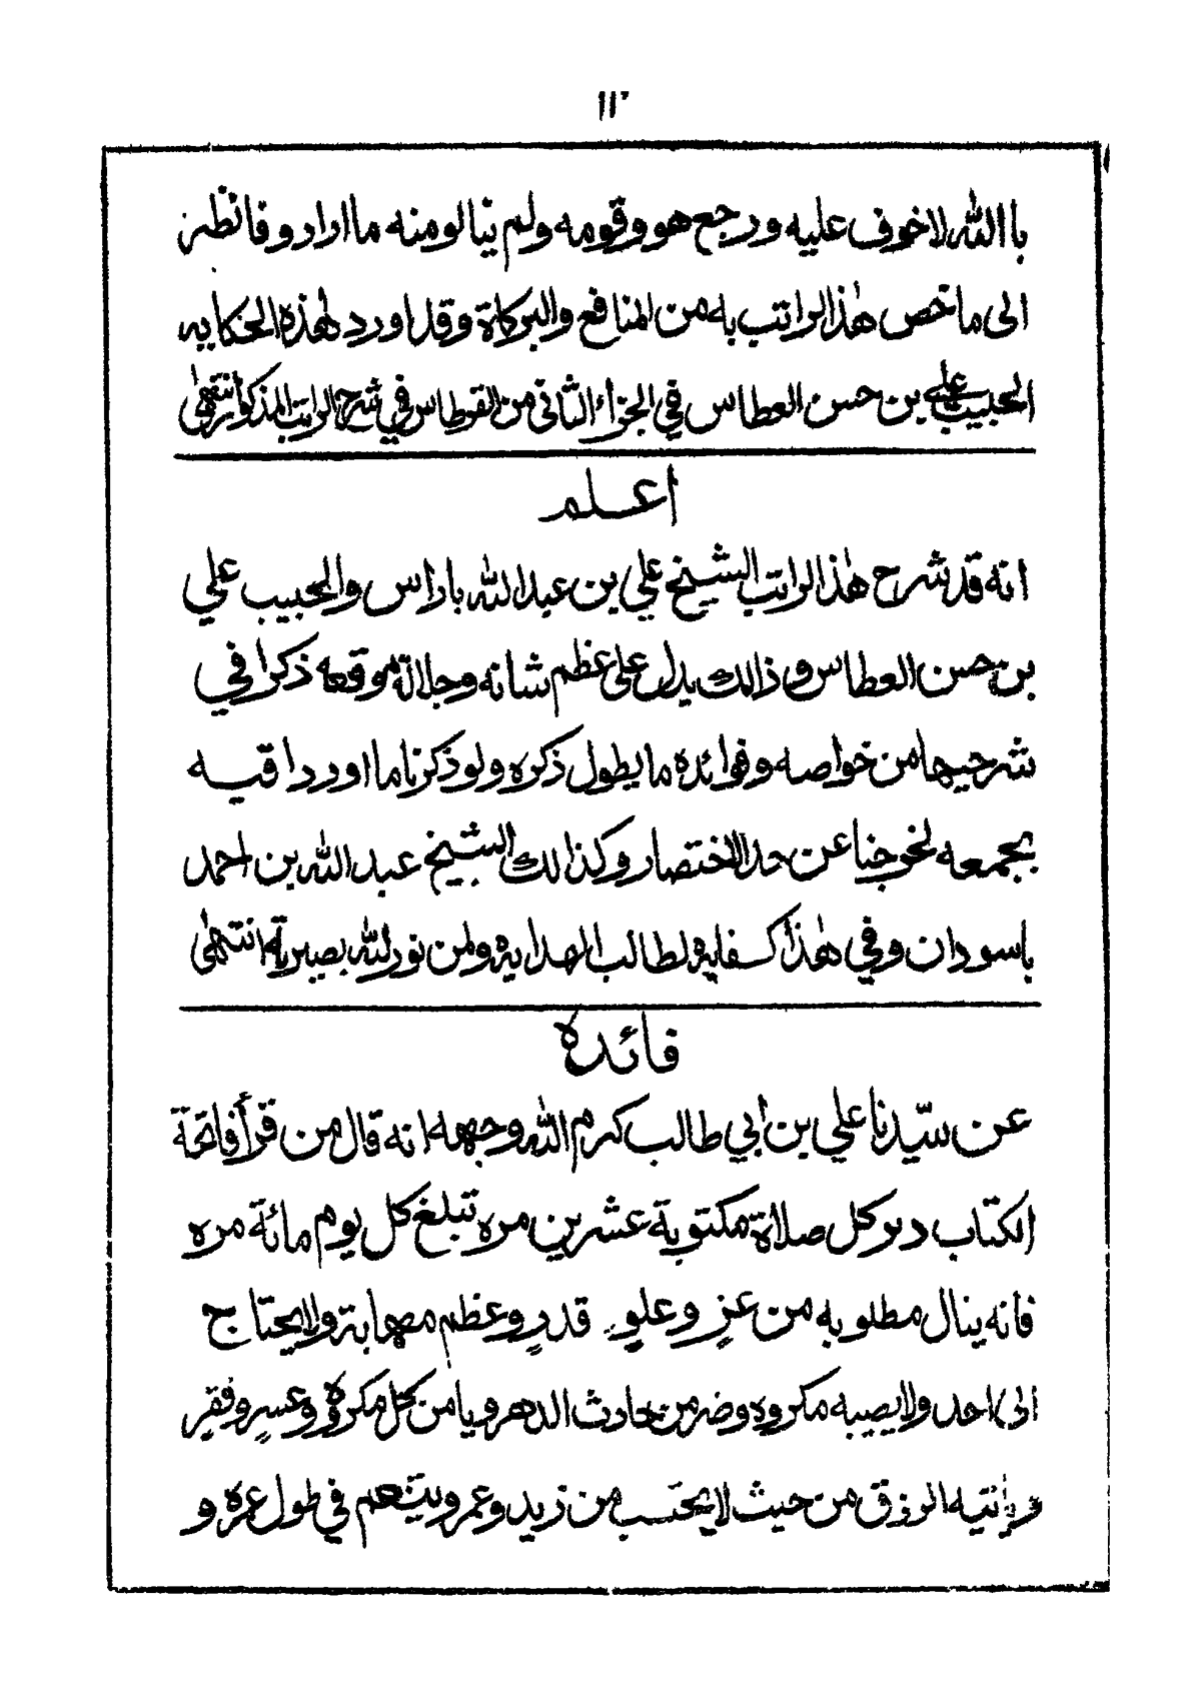 ١١٢
باالله لاخوف عليه ورجع هو وقومه ولم ينالو منه ما ارادو فانظر
الى ماخص هذا الراتب به من المنافع والبركاة وقد اورد لهذه الحكايه
الحبيب علي بن حسن العطاس في الجزاء الثاني من القرطاس في شرح الراتب المذكور انتهى
اعلم
انه قد شرح هذا الراتب الشيخ علي بن عبد الله باراس والحبيب علي
بن حسن العطاس و ذالك يدل على عظم شانه وجلالة موقعه ذكرا في
شرحيها من خواصه وفوائده ما يطول ذكره ولو ذكرنا ما اوردا فيه
بجمعه لخرجنا عن حد الاختصار وكذالك الشيخ عبد الله بن احمد
باسودان وفي هذا كفايه لطالب الهدايه ولمن نور الله بصيرته انتهى
فائده
عن سيّدنا علي بن أبي طالب كرم الله وجهه انه قال من قرأ فاتحة
الكتاب دبر كل صلاة مكتوبة عشرين مره تبلغ كل يوم مائة مره
فانه ينال مطلوبه من عزٍ وعلوٍ قدرٍ وعظم مهابة ولا يحتاج
الى احد ولا يصيبه مكروه وضر من حادث الدهر ويامن كل مكروه وعسرٍ وفقرٍ
وياتيه الرزق من حيث لا يحتسب من زيد وعمر ويتنعم في طول عمره و